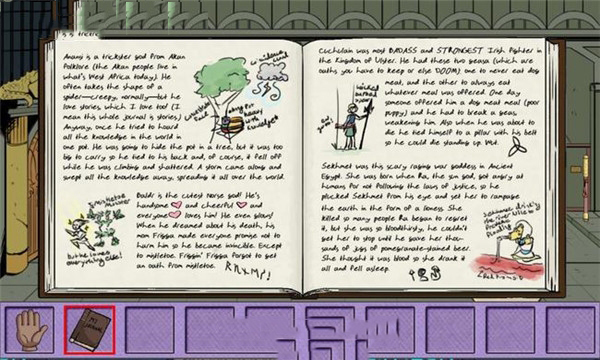 Anansi is a trickster god from Akan
folklore (the Akan people live in
what's West Africa today). He
often takes the shape of a
spider—creepy, normally—but he
love stories, which I love too! (I
mean this whole journal is stories.)
Anyway, once he tried to hoard
all the knowledge in the world in
one pot. He was going to hide the pot in a tree, but it was too
big to carry so he tied to his back and, of course, it fell off
while he was climbing and shattered. A storm came along and
swept all the knowledge away, spreading it all over the world.
Baldr is the cutest norse god! He's
handsome and cheerful and
everyone loves him! He even glows!
When he dreamed about his death, his
mom Frigga made everyone promise not to
harm him so he became invincible. Except
to mistletoe. Friggin' Frigga forgot to get
an oath from mistletoe.
Cuchulain was most BADASS and STRONGEST Irish fighter in
the Kingdom of Ulster. He had these two geasa (which are
oaths you have to keep or else DOOM): one to never eat dog
meat, and the other to always eat
whatever meal was offered. One day
someone offered him a dog meat meal (poor
puppy) and he had to break a geas,
weakening him. Also when he was about to
die he tied himself to a pillar with his belt
so he could die standing up. Wut.
Sekhmet was this scary raging war goddess in Ancient
Egypt. She was born when Ra, the sun god, got angry at
humans for not following the laws of justice, so he
plucked Sekhmet from his eye and set her to rampage
the earth in the form of a lioness. She
killed so many people Ra began to regret
it, but she was so bloodthirsty, he couldn't
get her to stop until he gave her thou-
sands of jugs of pomegranate-stained beer.
She thought it was blood so she drank it
all and fell asleep.
MY